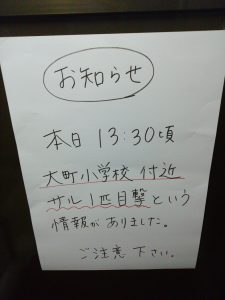 お知らせ
本日 13:30頃
大町小学校 付近
サル1匹目撃という
情報がありました。
ご注意 下さい。